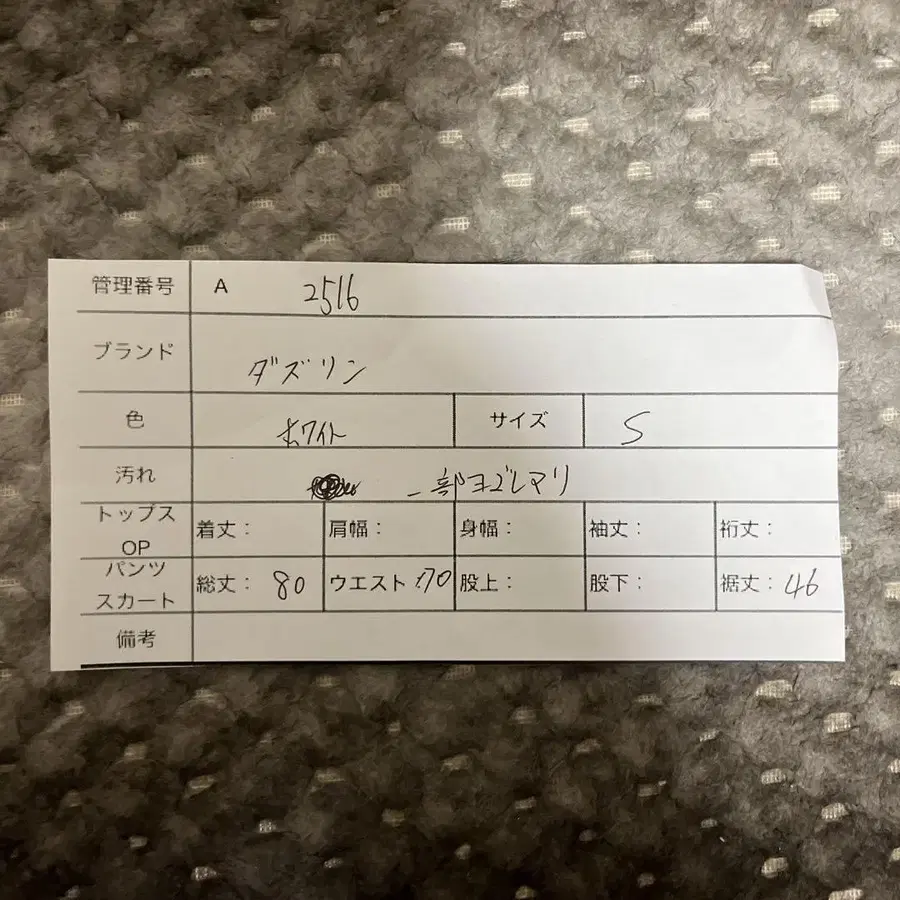 管理番号 A 2516
ブランド ダズリン
色 ホワイト サイズ S
汚れ 一部ヨゴレアリ
トップス OP 着丈： 肩幅： 身幅： 袖丈： 裄丈：
パンツ スカート 総丈： 80 ウエスト：70 股上： 股下： 裾丈： 46
備考